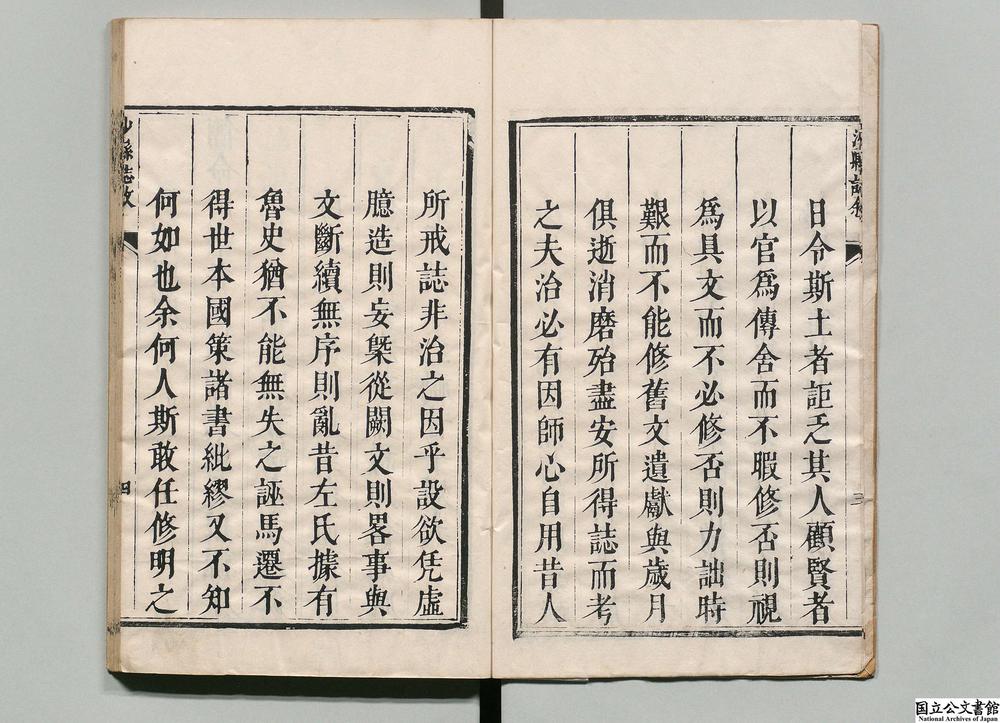 日令斯土者詎乏其人顧賢者
以官爲傳舍而不暇修否則視
爲具文而不必修否則力詘時
艱而不能修舊文遺獻與歲月
俱逝消磨殆盡安所得誌而考
之夫治必有因師心自用昔人
沙縣誌叙
三
所戒誌非治之因乎設欲凭虛
臆造則妄槩從闕文則畧事與
文斷續無序則亂昔左氏據有
魯史猶不能無失之誣馬遷不
得世本國策諸書紕繆又不知
何如也余何人斯敢任修明之
沙縣誌
四
国立公文書館
National Archives of Japan